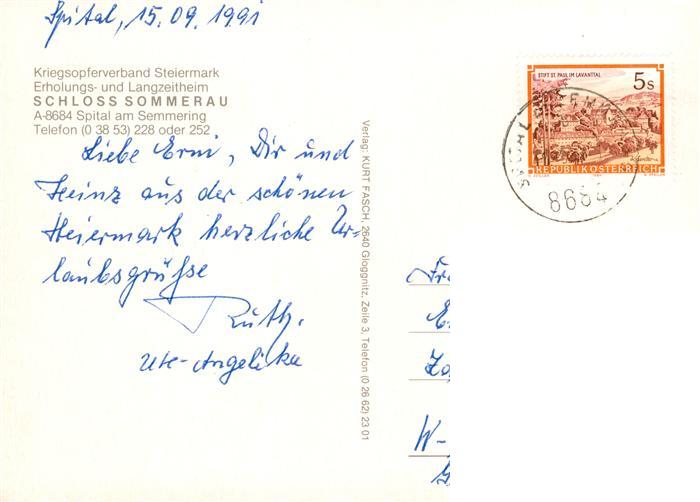 Spital, 15.09.1991
Kriegsopferverband Steiermark
Erholungs- und Langzeitheim
SCHLOSS SOMMERAU
A-8684 Spital am Semmering
Telefon (0 38 53) 228 oder 252
Liebe Erni, Dir und
Heinz aus der schönen
Steiermark herzliche Ur-
laubsgrüße
Ruth.
Ute-Angelika
Verlag: KURT FASCH, 2640 Gloggnitz, Zeile 3, Telefon (0 26 62) 23 01
STIFT ST. PAUL IM LAVANTTAL
5s
REPUBLIK ÖSTERREICH
8684
Fr
E
W-